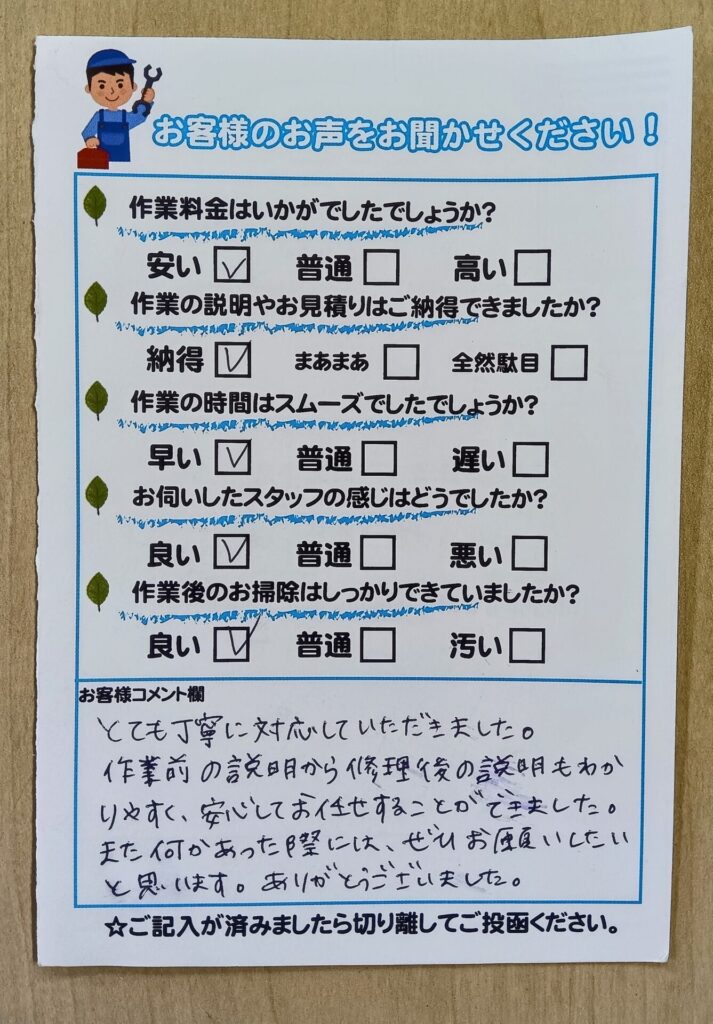 お客様のお声をお聞かせください！
作業料金はいかがでしたでしょうか？
安い ☑ 普通 ☐ 高い ☐
作業の説明やお見積りはご納得できましたか？
納得 ☑ まあまあ ☐ 全然駄目 ☐
作業の時間はスムーズでしたでしょうか？
早い ☑ 普通 ☐ 遅い ☐
お伺いしたスタッフの感じはどうでしたか？
良い ☑ 普通 ☐ 悪い ☐
作業後のお掃除はしっかりできていましたか？
良い ☑ 普通 ☐ 汚い ☐
お客様コメント欄
とても丁寧に対応していただきました。
作業前の説明から修理後の説明もわか
りやすく、安心してお任せすることができました。
また何かあった際には、ぜひお願いしたい
と思います。ありがとうございました。
☆ご記入が済みましたら切り離してご投函ください。